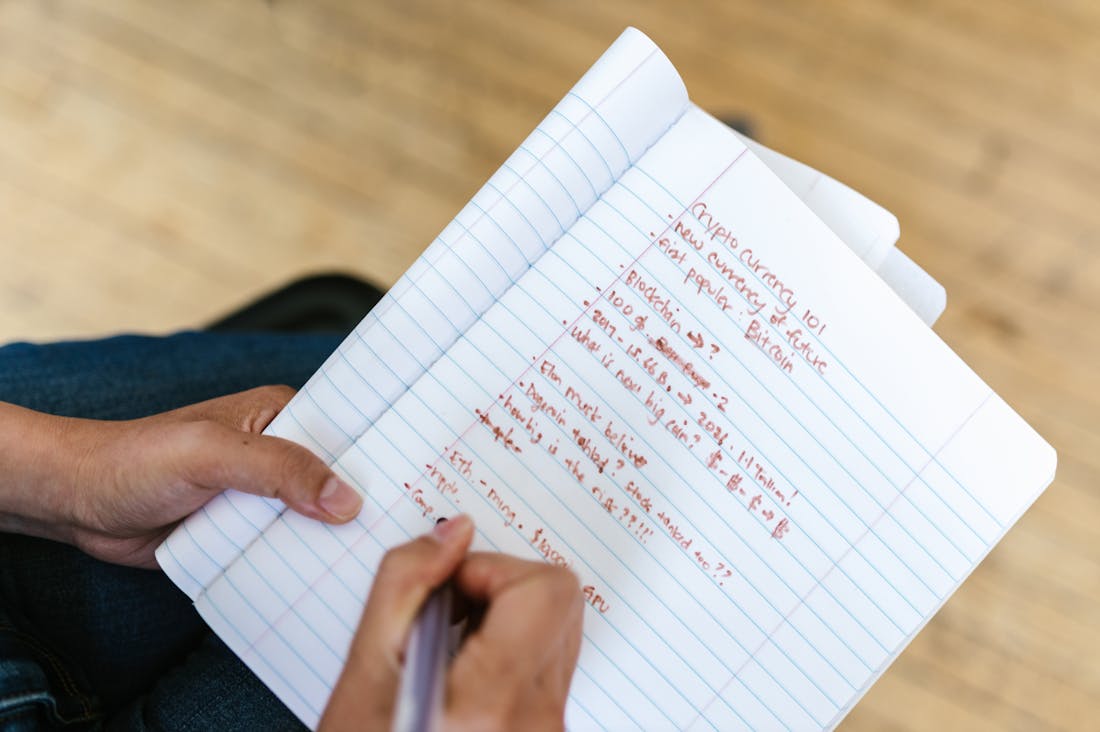 Crypto Currency 101
- new currency of future
- first popular: Bitcoin
- Blockchain → ?
- 100 $ :2
- 2017 - 15.66 B. → 2021. 1.1 Trillion!
- What is next big coin? $ - $ - $ → $
- Elon musk believe
- Dogecoin tanked? Stock tanked too??
- how big is the risk???!!
- Eth. - mining. $1000 GPU
- ripple.
- Comp.